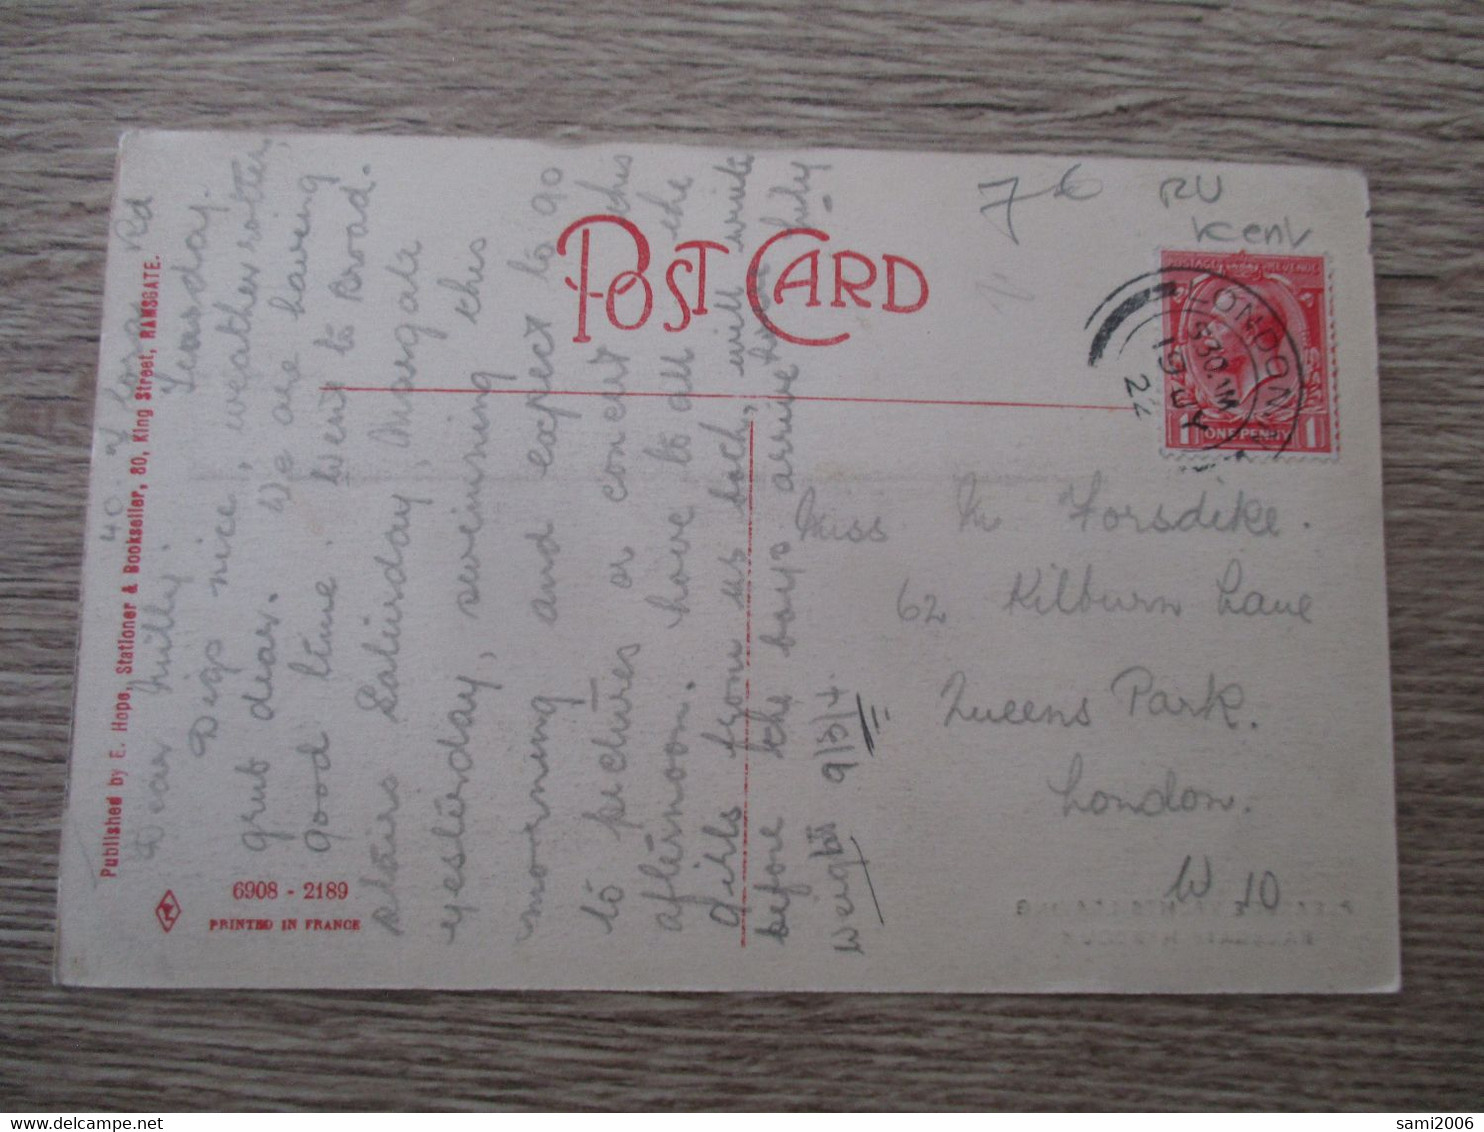 40. Long Rd
Tuesday.
Dear Milly.
Digs nice, weather rotten,
grub dear. We are having
good time. Went to Broad.
stairs Saturday, Margate
yesterday, swimming this
morning and expect to go
to pictures or concert this
afternoon. have to all the
girls from us both, will write
before the boys arrive
July
Weight 9/3/4.
POST CARD
Published by E. Hope, Stationer & Bookseller, 80, King Street, RAMSGATE.
6908 - 2189
PRINTED IN FRANCE
7€
RU
Kent
LONDON
19 SEY
22
POSTAGE REVENUE
1 ONE PENNY 1
Miss M Forsdike.
62 Kilburn Lane
Queens Park.
London.
W. 10
sami2006